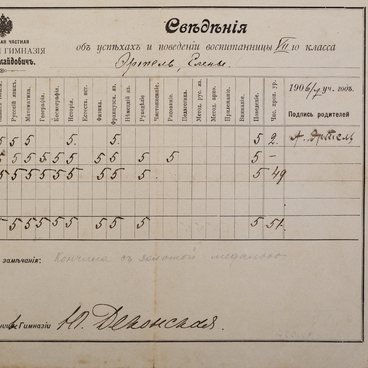 ая частная
ГИМНАЗІЯ
айдовичъ.
Свѣдѣнія
объ успѣхахъ и поведеніи воспитанницы VII го класса
Эртель, Елены.
Русскій язык.
Математика.
Географія.
Исторія.
Физика.
Французск. яз.
Нѣмецкій яз.
Рукодѣліе
Чистописаніе.
Рисованіе.
Педагогика.
Метод. рус. яз.
Метод. ариѳм.
Прилежаніе.
Вниманіе.
Поведеніе.
Час. проп. ур.
1906/7 уч. годъ.
Подпись родителей
5 5 5 5. 5. 5 2. А. Эртель
5 5 5 5 5 5 5 5 5 5 5 5 –
5 5 5 5 5 5 5 5 5 5 5 49
5 5 5 5 5 5 5 5 5 5 5 51.
замѣчанія: Кончила съ золотой медалью.
Гимназіи